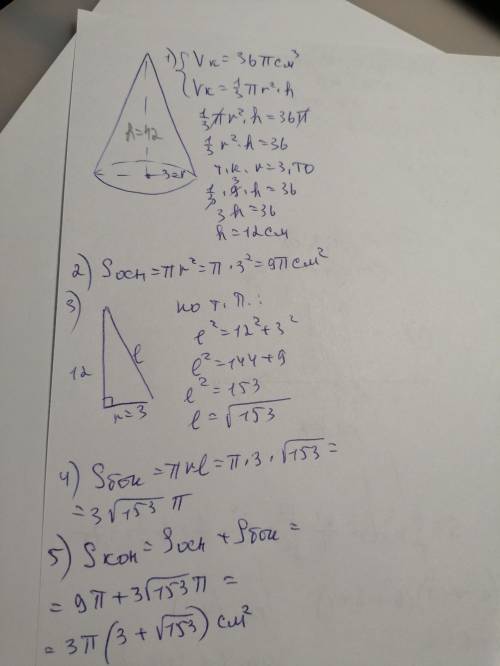 1) { Vк = 36π см³
Vк = 1/3 πr²·h
1/3 πr²·h = 36π
1/3 r²·h = 36
т.к. r = 3, то
1/3·9·h = 36
3h = 36
h = 12 см
h=12
3=r
2) Sосн = πr² = π·3² = 9π см²
3)
12
l
r=3
по т. п.:
l² = 12² + 3²
l² = 144 + 9
l² = 153
l = √153
4) Sбок = πrl = π·3·√153 =
= 3√153 π
5) Sкон = Sосн + Sбок =
= 9π + 3√153 π =
= 3π(3 + √153) см²